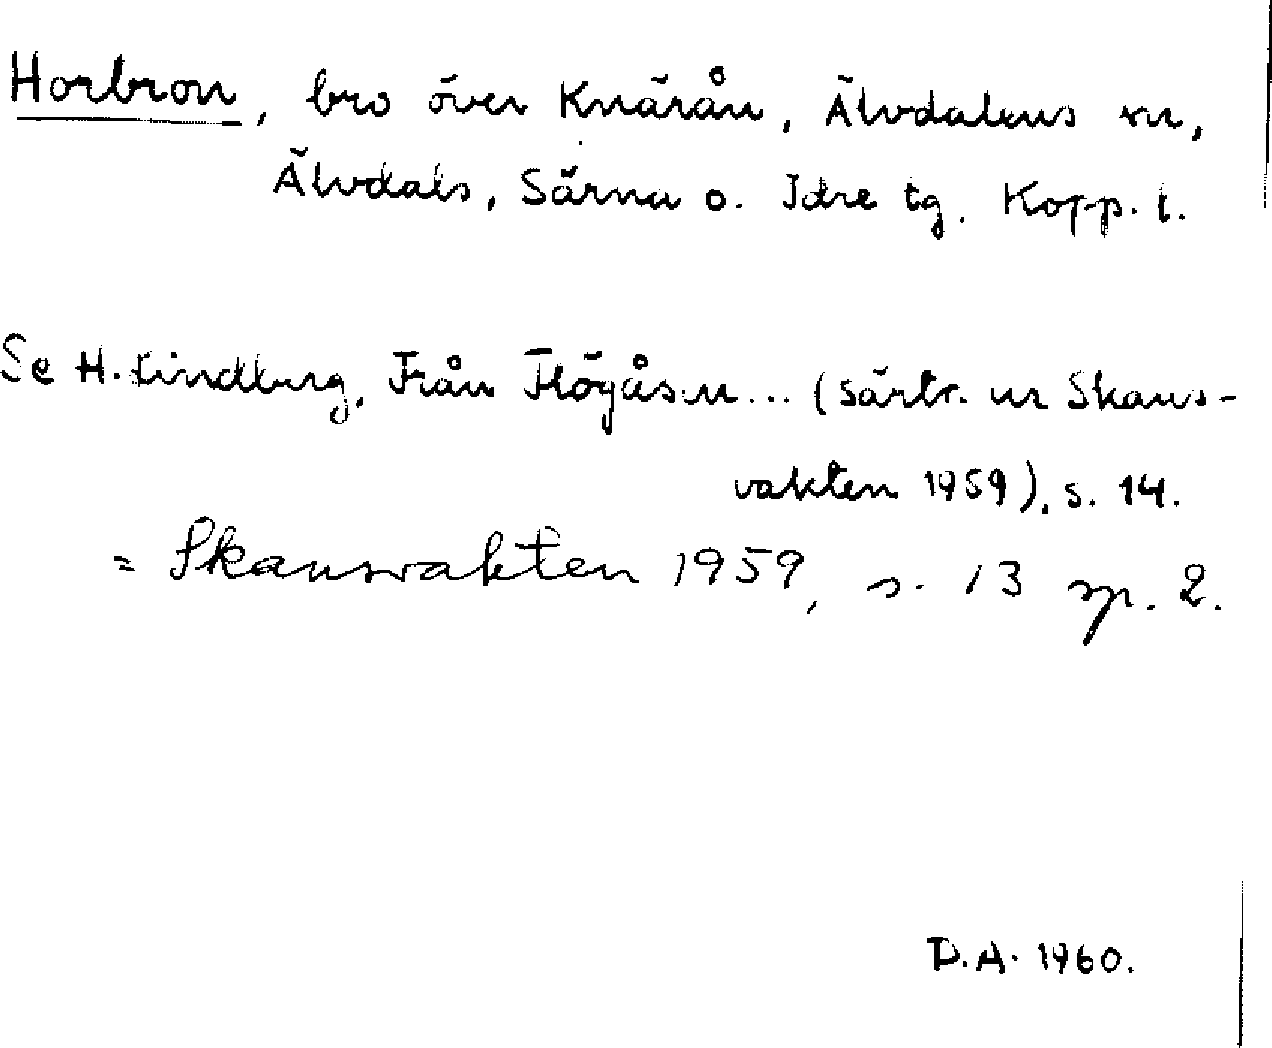 Horbron, bro över Knärån, Älvdalens sn,
Älvdals, Särna o. Idre tg. Kopp. l.
Se H. Lindberg, Från Flögåsen... (särtr. ur Skans-
vakten 1959), s. 14.
= Skansvakten 1959, s. 13 sp. 2.
D.A. 1960.